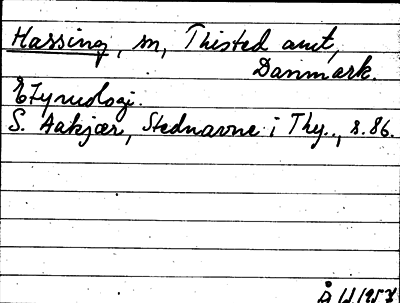 Hassing, sn, Thisted amt,
Danmark.
Etymologi.
S. Aakjær, Stednavne i Thy., s. 86.